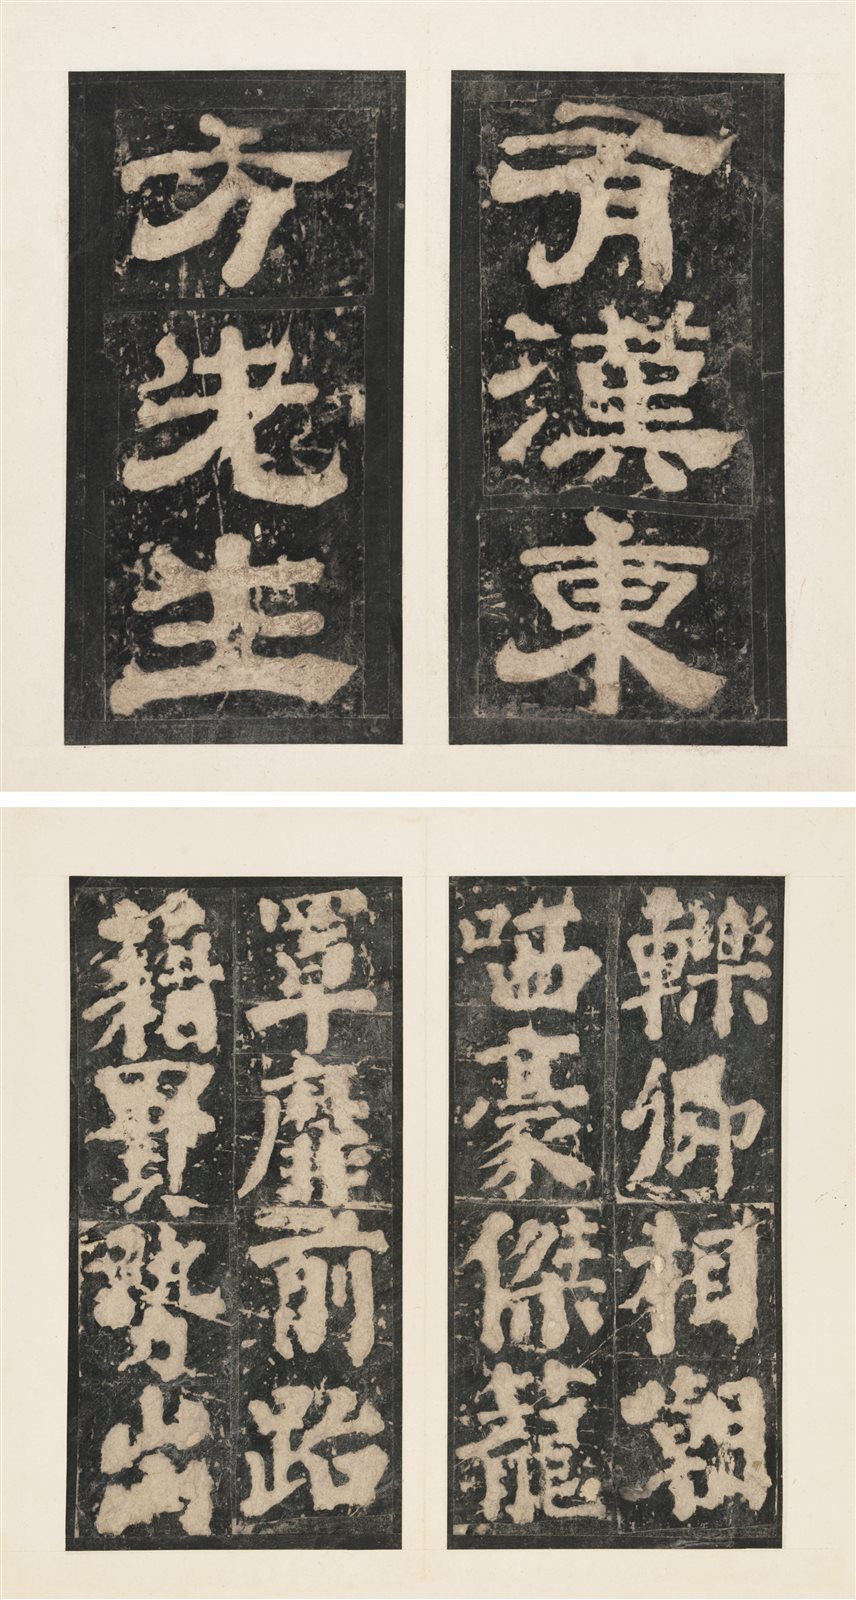 有漢東
方先生
轢卿相嘲
哂豪傑籠
罩靡前跆
籍貴勢出